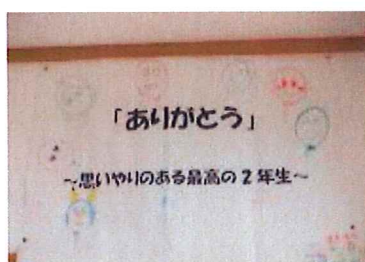 「ありがとう」
～思いやりのある最高の2年生～